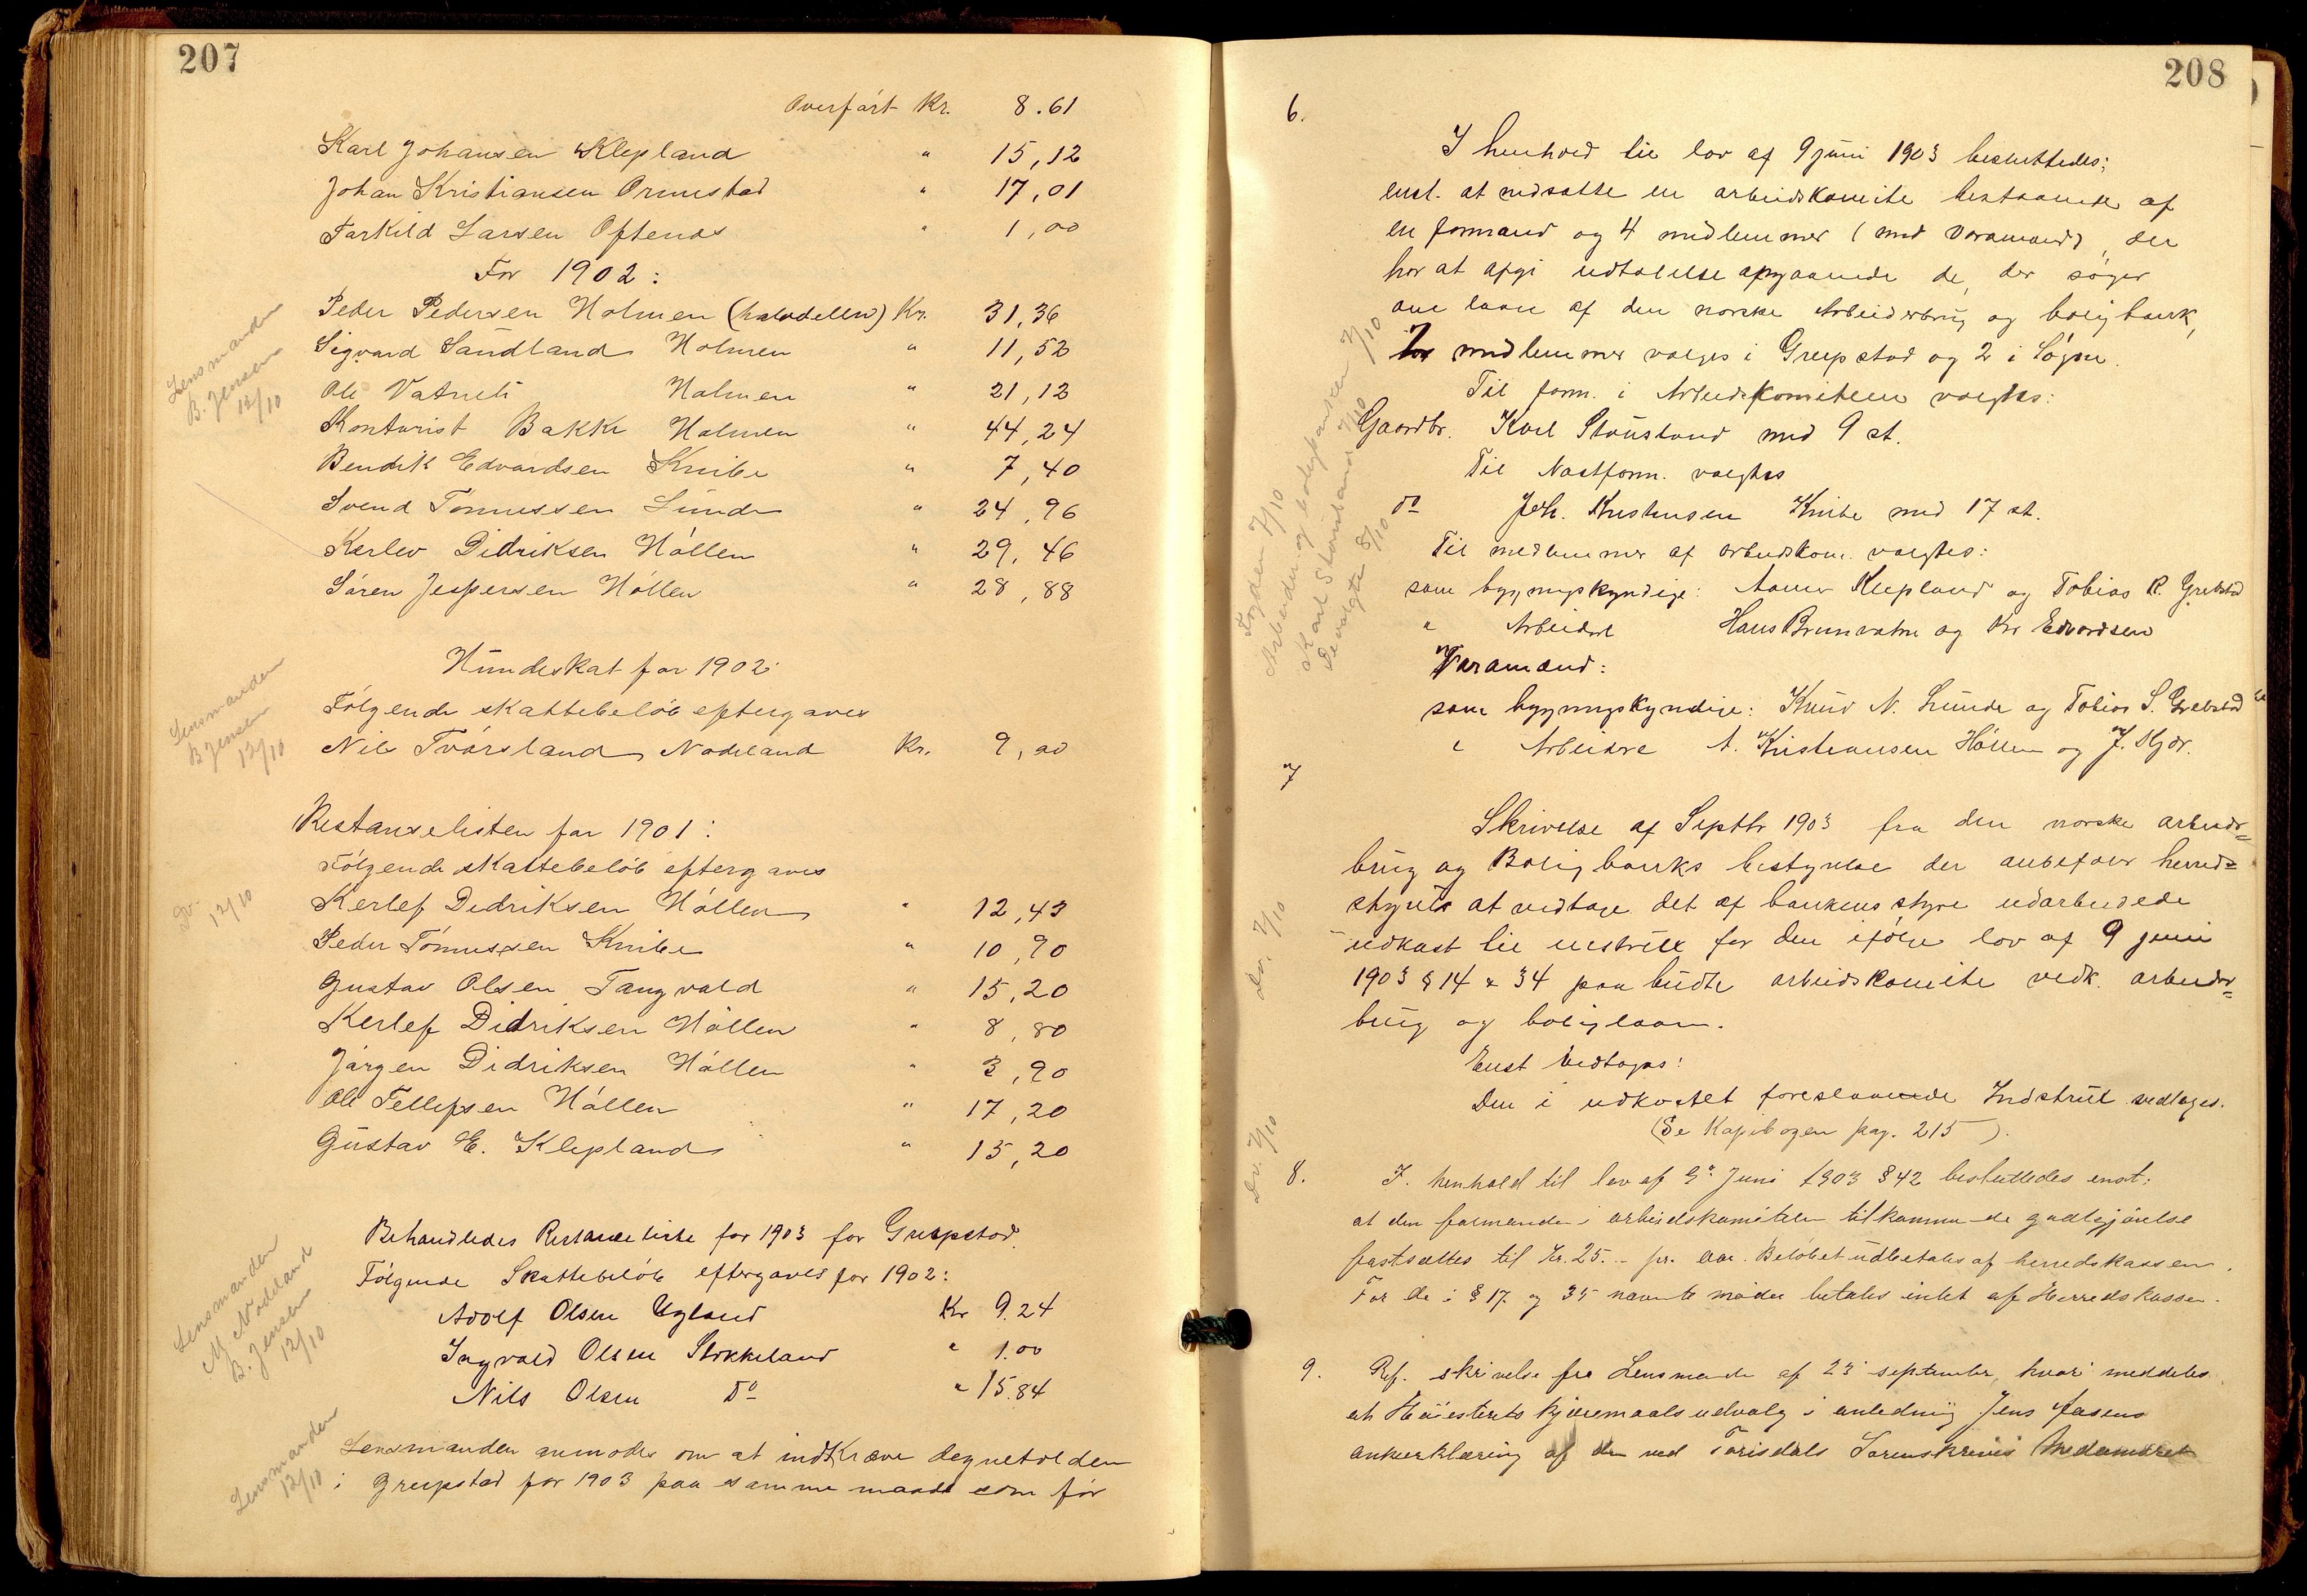 207
Overført Kr. 8.61
Karl Johansen Klepland " 15,12
Johan Kristiansen Ormestad " 17,01
Tarkild Larsen Oftenes " 1,00
For 1902:
Peder Pedersen Holmen (halvdelen) Kr. 31,36
Sigvard Sandland Holmen " 11,52
Ole Vatneli Holmen " 21,12
Kontorist Bakke Holmen " 44,24
Lensmanden
B. Jensen
12/10
Bendik Edvardsen Knibe " 7,40
Svend Tønnessen Lunde " 24,96
Kerlev Didriksen Høllen " 29,46
Søren Jespersen Høllen " 28,88
Hundeskat for 1902:
Følgende skattebeløb eftergaves
Nils Tvørsland, Nodeland Kr. 9,00
Lensmanden
B Jensen
12/10
Restanselisten for 1901:
Følgende skattebeløb eftergaves
Kerlef Dedriksen Høllen " 12,43
Do. 12/10
Peder Tønnessen Knibe " 10,90
Gustav Olsen Tangvald " 15,20
Kerlef Didriksen Høllen " 8,80
Jørgen Didriksen Høllen " 3,90
Ole Tellefsen Høllen " 17,20
Gustav E. Klepland " 15,20
Behandledes Restanceliste for 1903 for Greipstad.
Følgende Skattebeløb eftergaves for 1902:
Adolf Olsen Ugland Kr 9.24
Ingvald Olsen Stokkeland " 1.00
Nils Olsen Do " 15.84
Lensmanden
M Nodeland
B. Jensen
12/10
Lensmanden anmodes om at indkræve degnetolden
i Greipstad for 1903 paa samme maade som før
Lensmanden
12/10
208
6.
I henhold til lov af 9 juni 1903 besluttedes;
enst. at nedsætte en arbeidskomite bestaaende af
en formand og 4 medlemmer (med varamænd), der
har at afgi udtalelse angaaende de, der søger
om laan af den norske Arbeiderbrug og boligbank,
2 medlemmer vælges i Greipstad og 2 i Søgne.
Til form. i Arbeidskomiteen valgtes:
Gaardbr. Karl Stousland med 9 st.
Til Næstform. valgtes
do Joh. Kristensen Knibe med 17 st.
Til medlemmer af arbeidskom. valgtes:
som bygningskyndige: Aanen Klepland og Tobias R. Grebstad
" Arbeidere Hans Brunvatne og Kr Edvardsen
Varamænd:
som bygningskyndige: Knud N. Lunde og Tobias S. Grebstad
" Arbeidere A. Kristiansen Høllen og J. Skjør.
Fogden 7/10
Arbeider og boligbanken 7/10
Karl Stousland 7/10
De valgte 8/10
7
Skrivelse af Septbr 1903 fra den norske arbeider=
brug og Boligbanks bestyrelse der anbefaler herred=
styret at vedtage det af bankens styre udarbeidede
udkast til instrux for den ifølge lov af 9 juni
1903 § 14 & 34 paabudte arbeidskomite vedk. arbeider=
brug og boliglaan.
Do. 7/10
Enst vedtoges:
Den i udkastet foreslaaede Indstrux vedtages.
(Se Kopibogen pag. 215).
8. I. henhold til lov af 9de Juni 1903 § 42 besluttedes enst:
at den formanden i arbeidskomiteen tilkommende godtgjørelse
fastsættes til Kr. 25.- pr. aar. Beløbet udbetales af herredskassen.
For de i § 17 og 35 nævnte møder betales intet af Herredskassen.
Do. 7/10
9. Ref. skrivelse fra Lensmanden af 23 september, hvori meddeles
at Høiesterets kjæremaalsudvalg i anledning Jens Aasens
ankeerklæring af den ved Torisdals Sorenskriveri Meddomsret